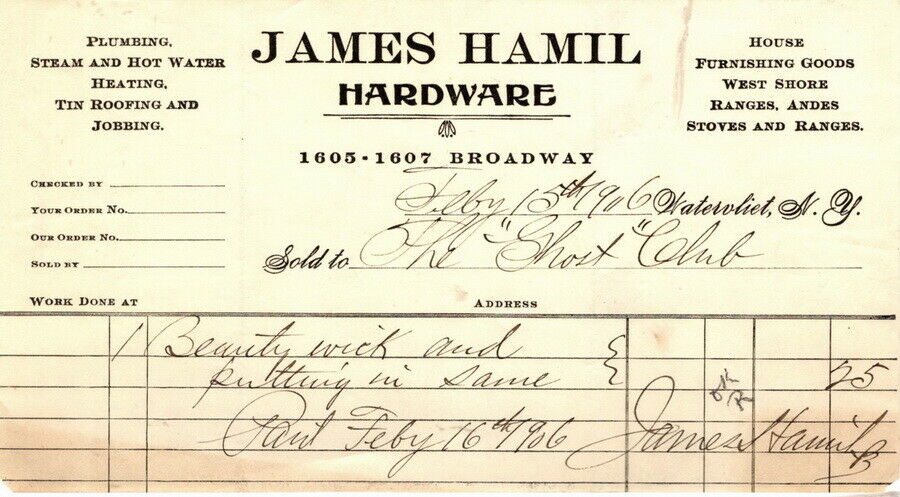 PLUMBING,
STEAM AND HOT WATER
HEATING,
TIN ROOFING AND
JOBBING.
JAMES HAMIL
HARDWARE
1605-1607 BROADWAY
HOUSE
FURNISHING GOODS
WEST SHORE
RANGES, ANDES
STOVES AND RANGES.
CHECKED BY
YOUR ORDER NO.
OUR ORDER NO.
SOLD BY
Feby 15th 1906 Watervliet, N. Y.
Sold to The "Ghost" Club
WORK DONE AT ADDRESS
1 Beauty wick and
putting in same 25
OK
Paid Feby 16th 1906 James Hamil